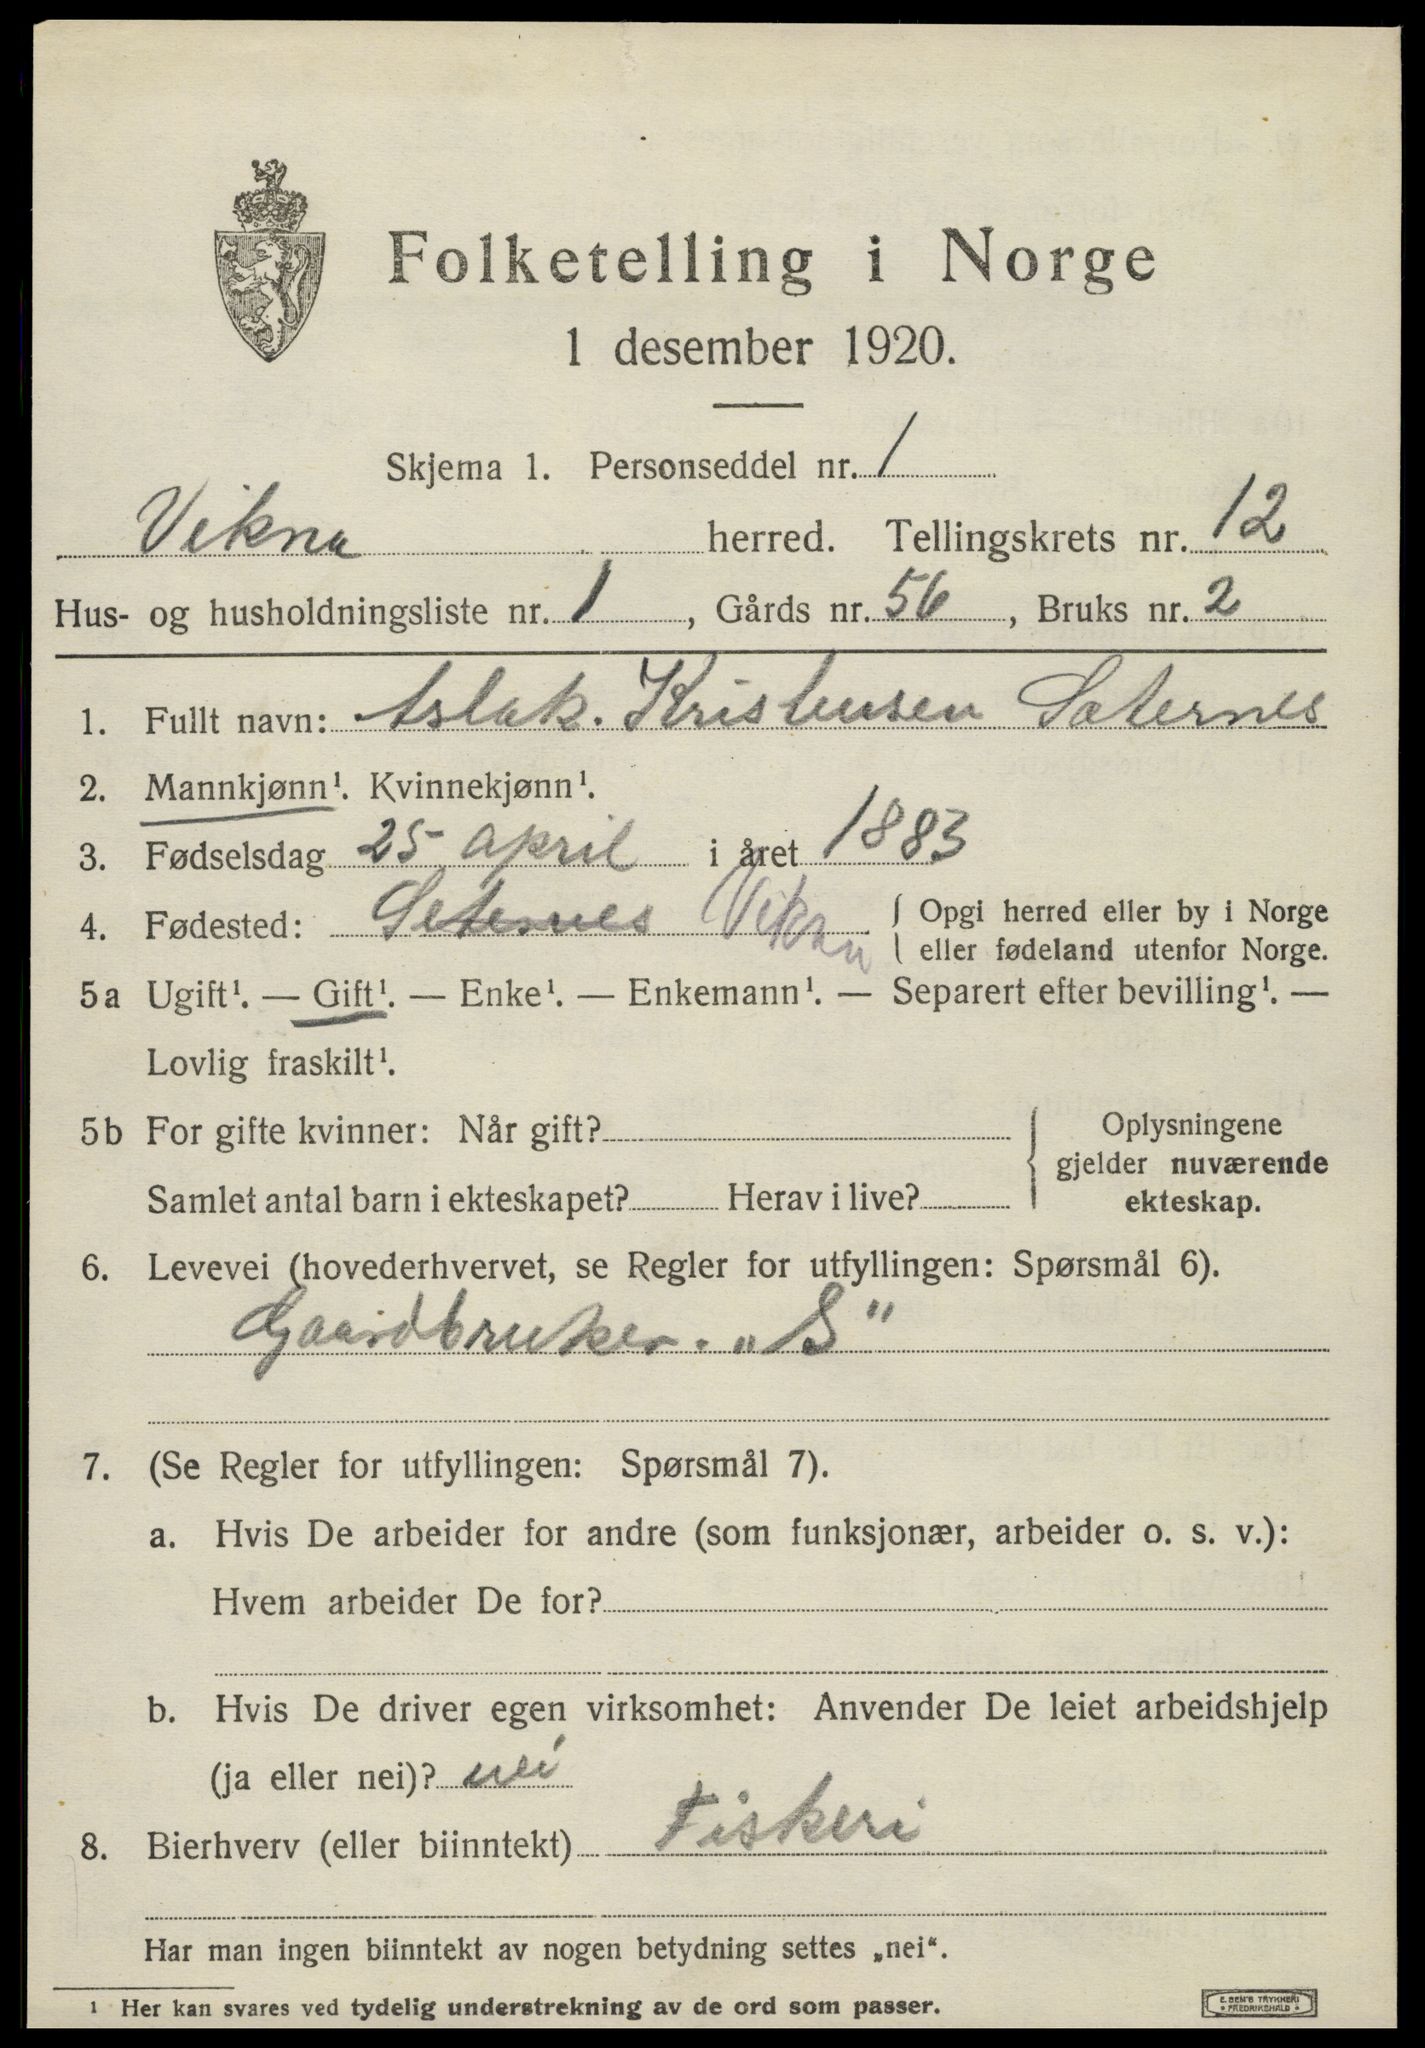 Folketelling i Norge
1 desember 1920.
Skjema 1. Personseddel nr. 1
Vikna herred. Tellingskrets nr. 12
Hus- og husholdningsliste nr. 1, Gårds nr. 56, Bruks nr. 2
1. Fullt navn: Aslak. Kristensen Säternes
2. Mannkjønn¹. Kvinnekjønn¹.
3. Fødselsdag 25 april i året 1883
4. Fødested: Seternes Vikna { Opgi herred eller by i Norge
eller fødeland utenfor Norge.
5a Ugift¹. — Gift¹. — Enke¹. — Enkemann¹. — Separert efter bevilling¹. —
Lovlig fraskilt¹.
5b For gifte kvinner: Når gift?
Samlet antal barn i ekteskapet? Herav i live?
Oplysningene
gjelder nuværende
ekteskap.
6. Levevei (hovederhvervet, se Regler for utfyllingen: Spørsmål 6).
Gaardbruker. „S“
7. (Se Regler for utfyllingen: Spørsmål 7).
a. Hvis De arbeider for andre (som funksjonær, arbeider o. s. v.):
Hvem arbeider De for?
b. Hvis De driver egen virksomhet: Anvender De leiet arbeidshjelp
(ja eller nei)? nei
8. Bierhverv (eller biinntekt) Fiskeri
Har man ingen biinntekt av nogen betydning settes „nei“.
¹ Her kan svares ved tydelig understrekning av de ord som passer.
E. SEM'S TRYKKERI
• FREDRIKSHALD •